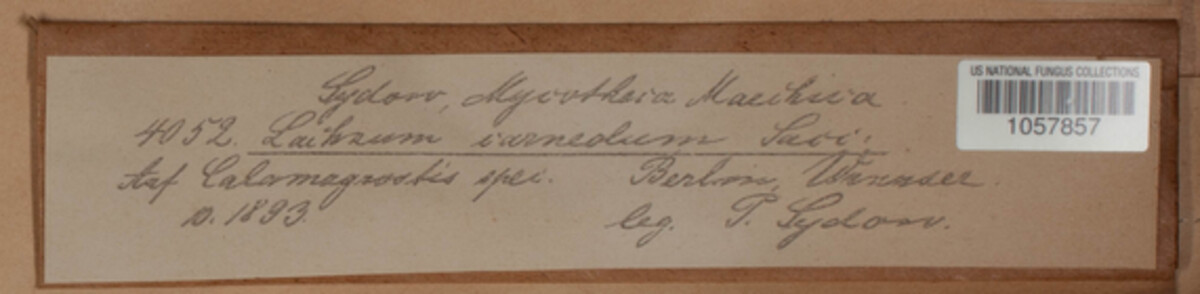 Sydow, Mycotheca Marchica
US NATIONAL FUNGUS COLLECTIONS
1057857
4052. Lachnum carneolum Sacc.
Auf Calamagrostis spec. Berlin, Wannsee.
10. 1893. leg. P. Sydow.